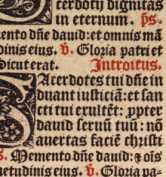 cerdotij dignitas
in eternum. ps.
ento dñe dauid: et omnis mã
dinis eius. v. Gloria patri et
Sicut erat. Introitus.
Sacerdotes tui dñe in
duant iusticiã: et san
cti tui exultẽt: ꝓpter
dauid seruũ tuũ: nõ
auertas faciẽ christi
s. Memento dñe dauid: et ois
uetudinis eius. v. Gloria pa